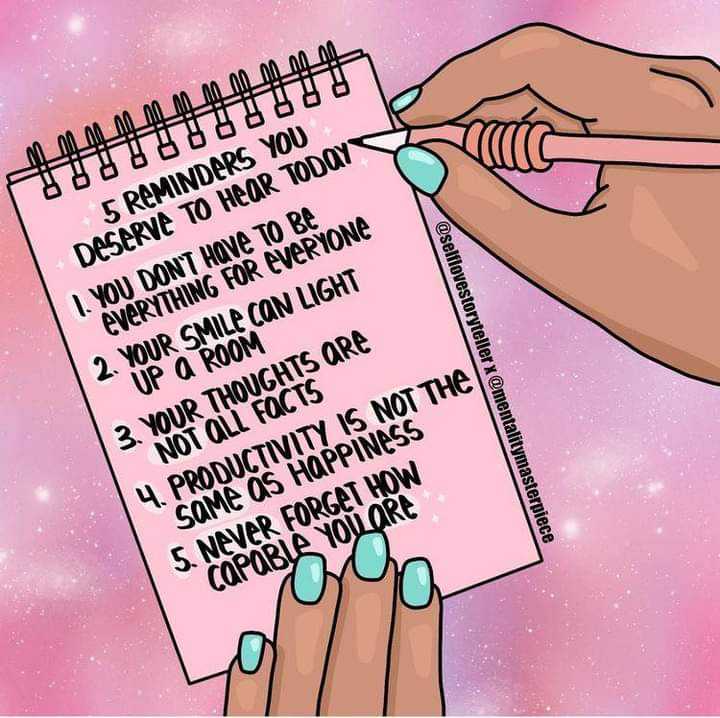 5 REMINDERS YOU
DESERVE TO HEAR TODAY
1. YOU DON'T HAVE TO BE
EVERYTHING FOR EVERYONE
2. YOUR SMILE CAN LIGHT
UP A ROOM
3. YOUR THOUGHTS ARE
NOT ALL FACTS
4. PRODUCTIVITY IS NOT THE
SAME AS HAPPINESS
5. NEVER FORGET HOW
CAPABLE YOU ARE
@selflovestoryteller x @mentalitymasterpiece